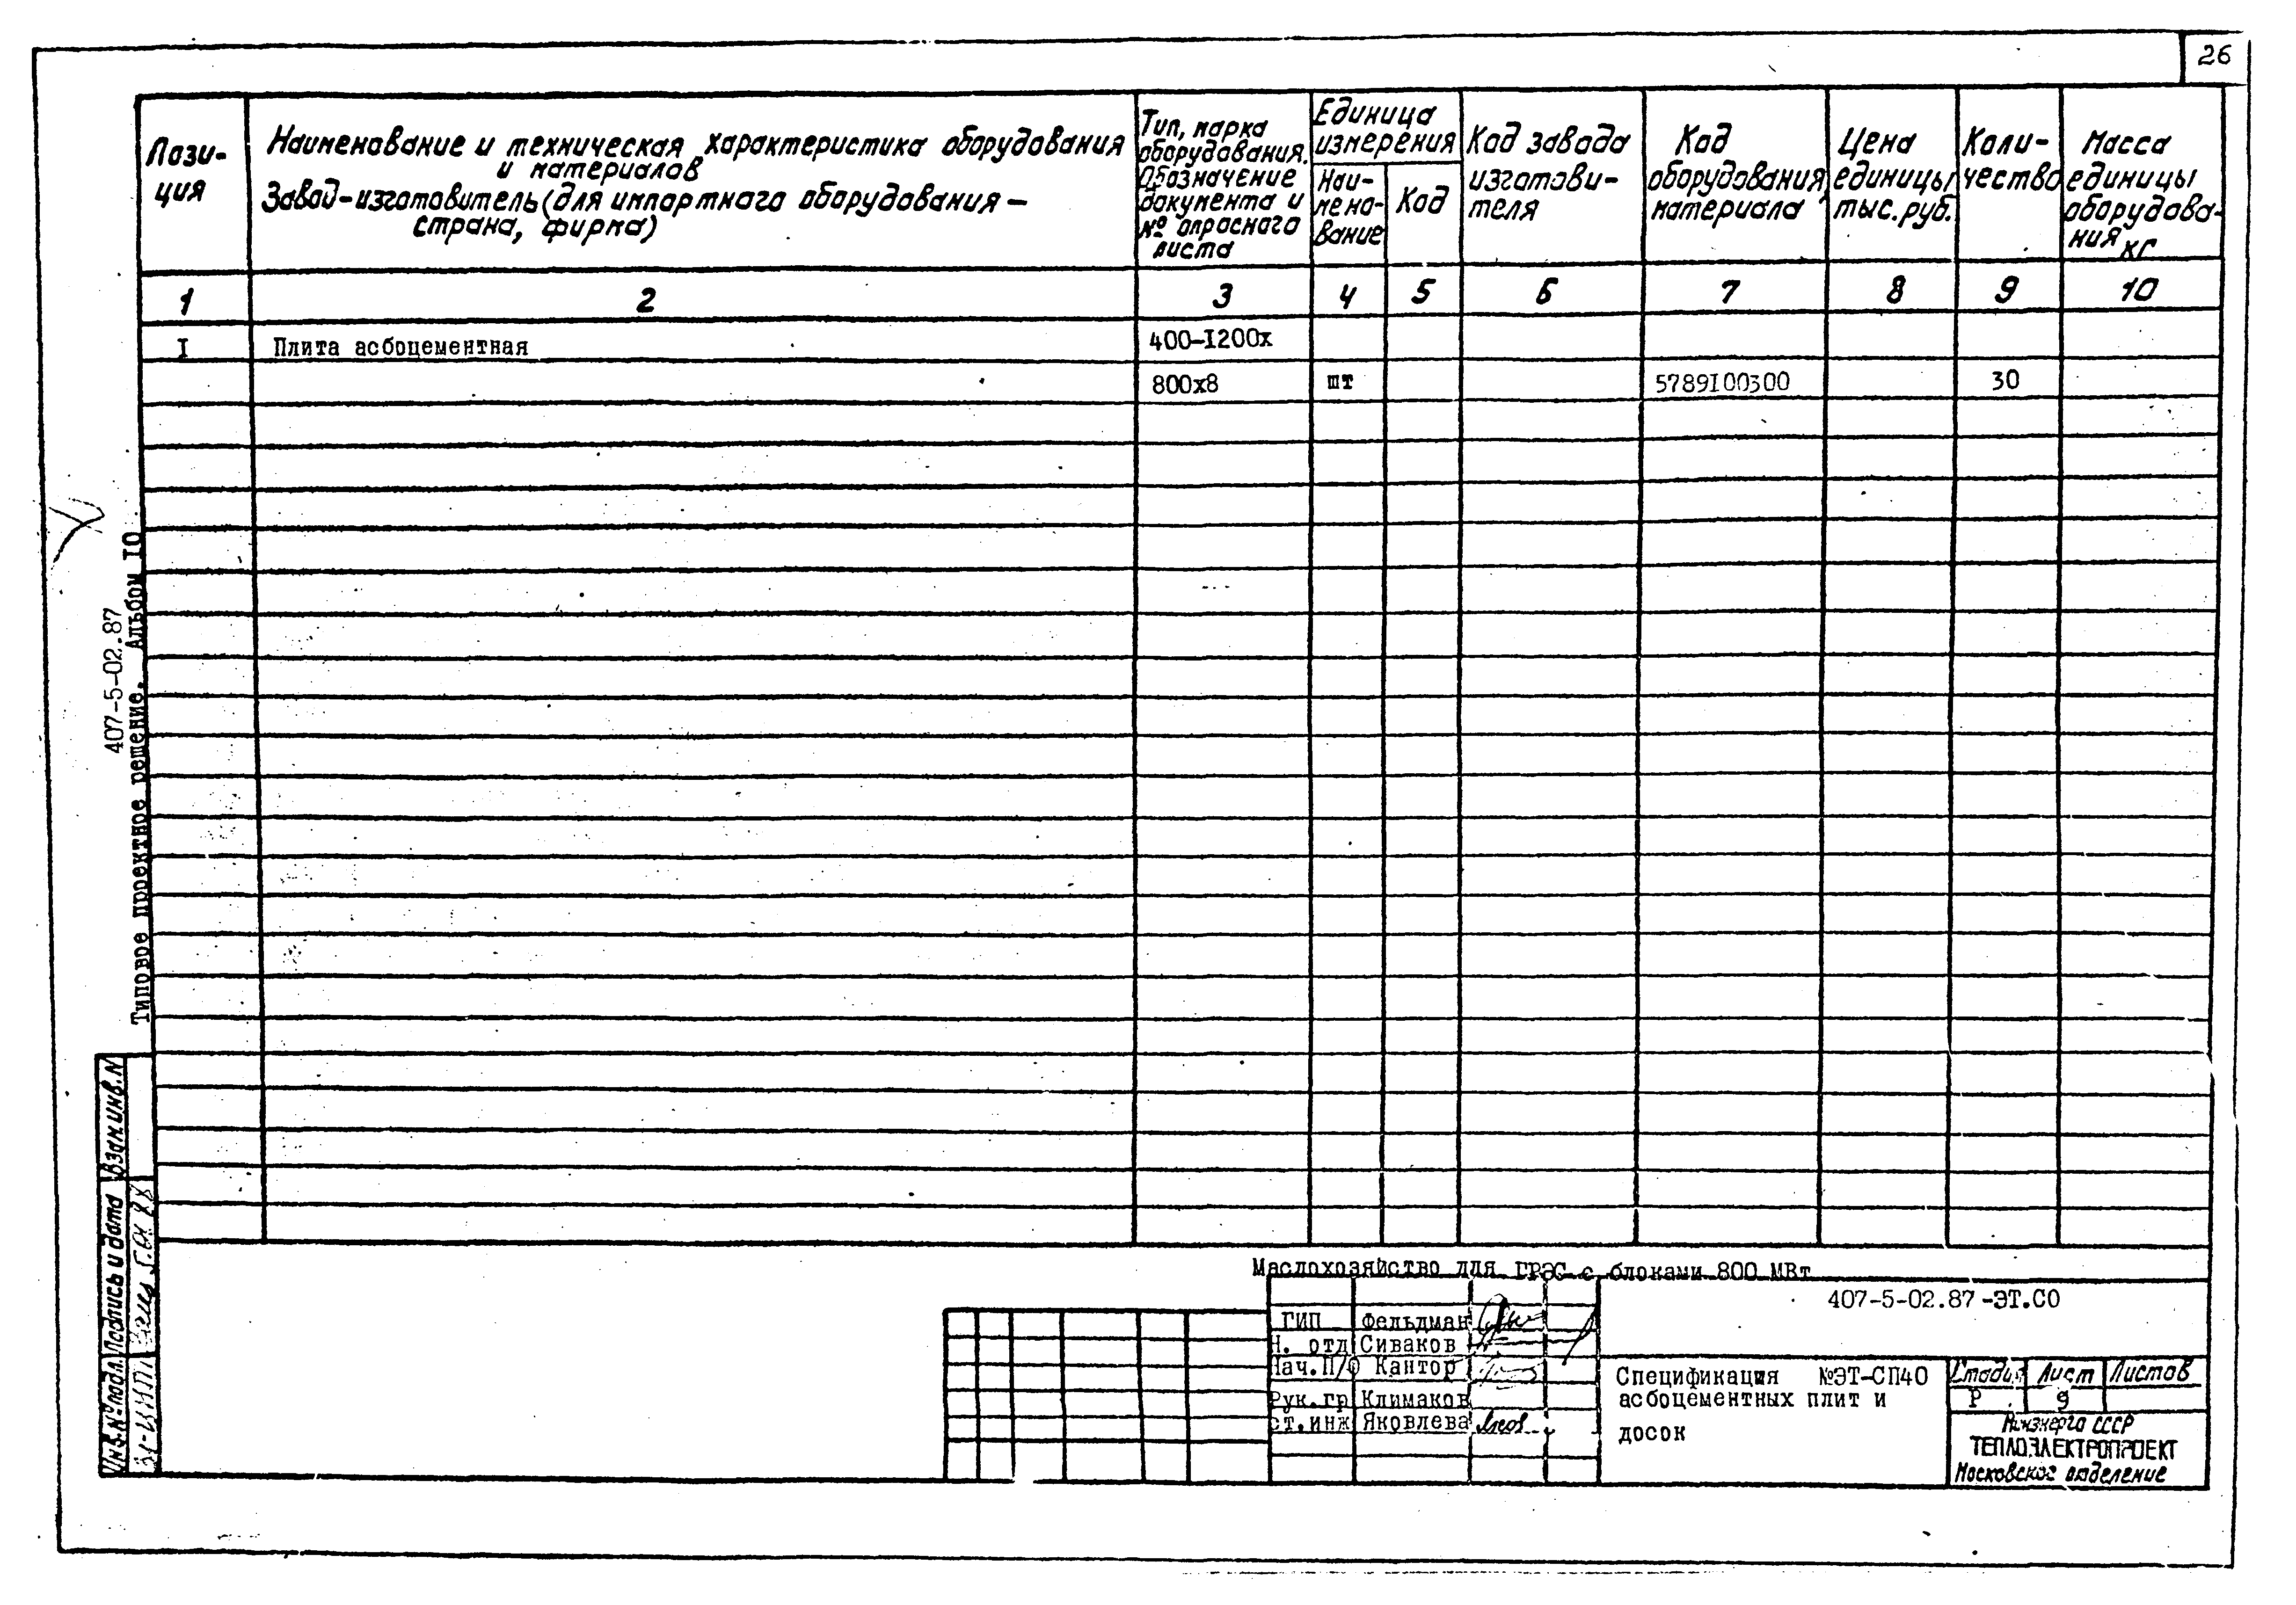 26
Пози-
ция
Наименование и техническая характеристика оборудования
и материалов
Завод-изготовитель (для импортного оборудования –
страна, фирма)
Тип, марка
оборудования.
Обозначение
документа и
№ опросного
листа
Единица
измерения
Наи-
мено-
вание
Код
Код завода
изготови-
теля
Код
оборудования,
материала
Цена
единицы
тыс.руб.
Коли-
чество
Масса
единицы
оборудова-
ния
кг
1 2 3 4 5 6 7 8 9 10
I Плита асбоцементная 400-I200х
800х8 шт 5789I00300 30
407-5-02.87
Типовое проектное решение. Альбом IO
Взам.инв.N
Подпись и дата
Инв.№подл.
Маслохозяйство для ГРЭС с блоками 800 МВт
407-5-02.87-ЭТ.СО
ГИП Фельдман
Н. отд Сиваков
Нач.П/О Кантор
Рук.гр Климаков
ст.инж Яковлева
Спецификация №ЭТ-СП40
асбоцементных плит и
досок
Стадия Лист Листов
Р 9
Минэнерго СССР
ТЕПЛОЭЛЕКТРОПРОЕКТ
Московское отделение